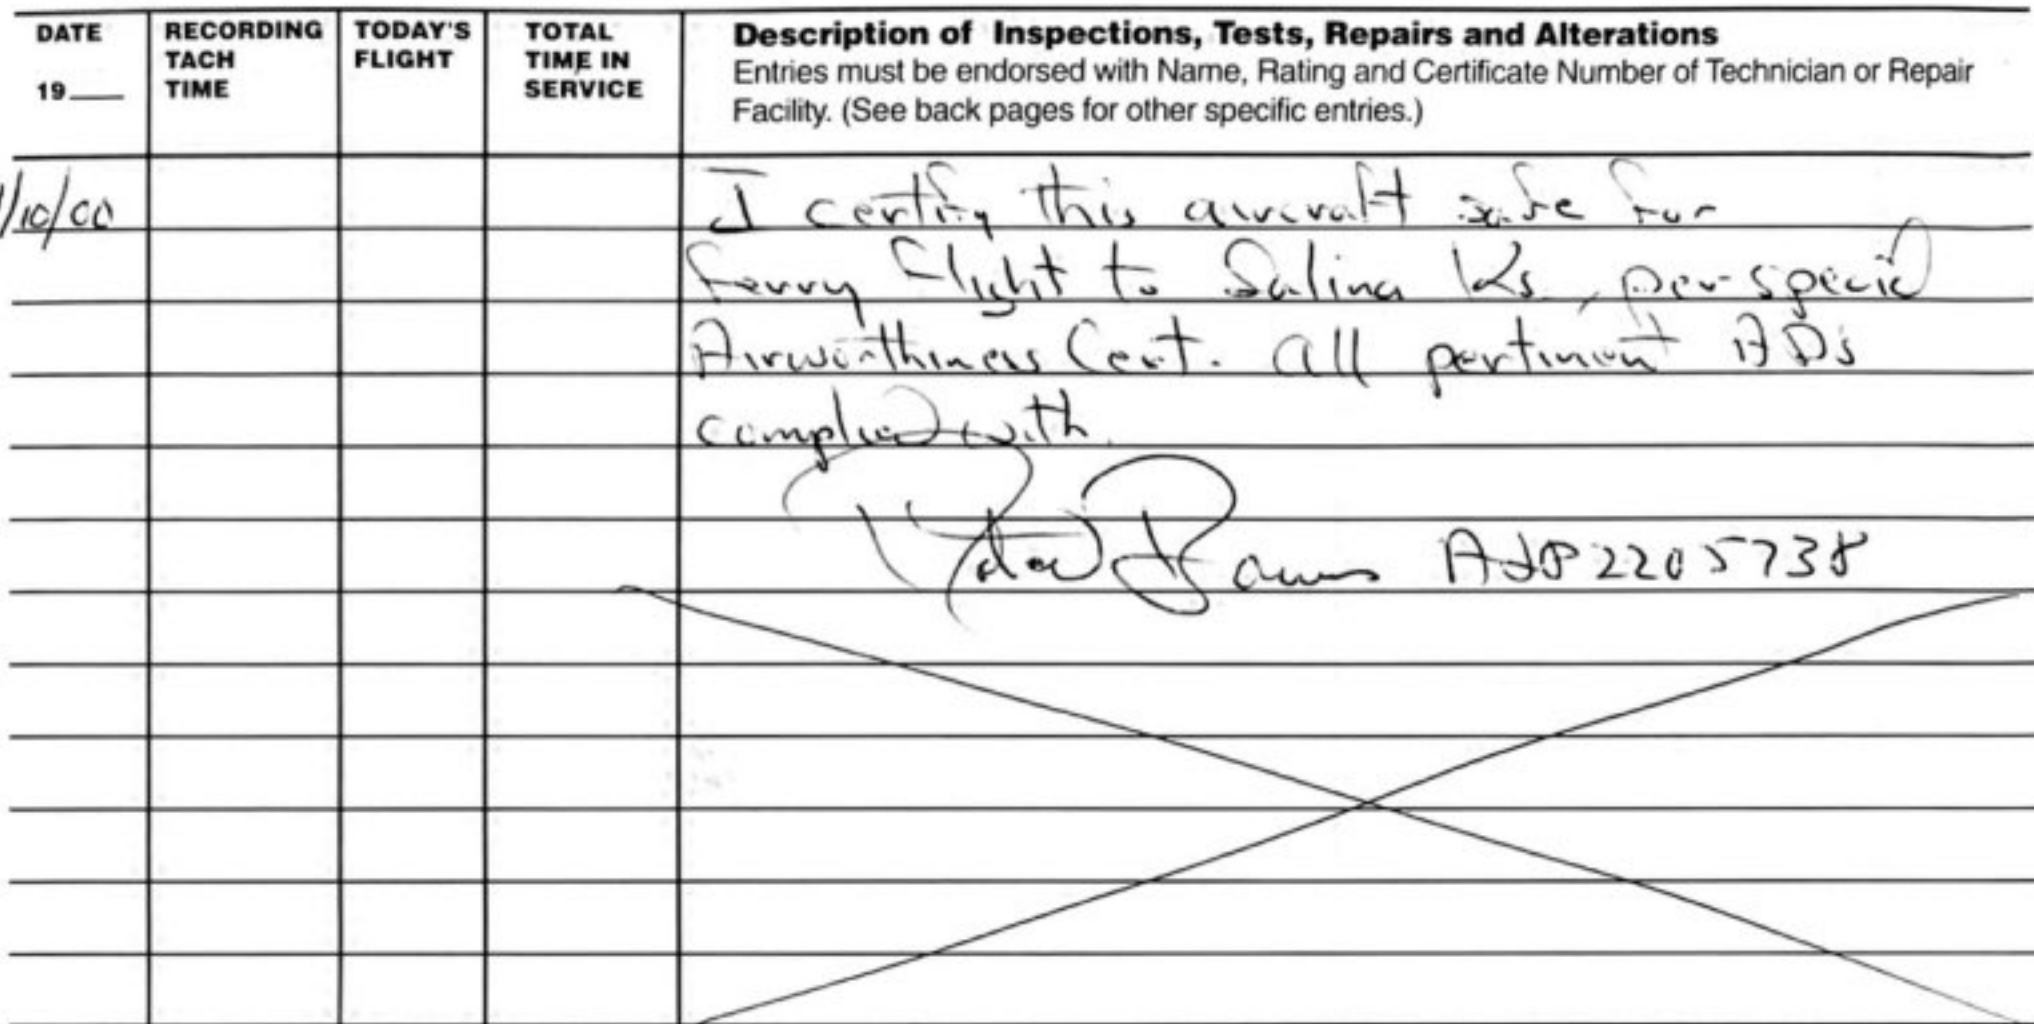 DATE
19___
RECORDING
TACH
TIME
TODAY'S
FLIGHT
TOTAL
TIME IN
SERVICE
Description of Inspections, Tests, Repairs and Alterations
Entries must be endorsed with Name, Rating and Certificate Number of Technician or Repair
Facility. (See back pages for other specific entries.)
/10/00
I certify this aircraft safe for
ferry flight to Salina Ks, per special
Airworthiness Cert. All pertinent ADs
complied with.
A&P 2205738